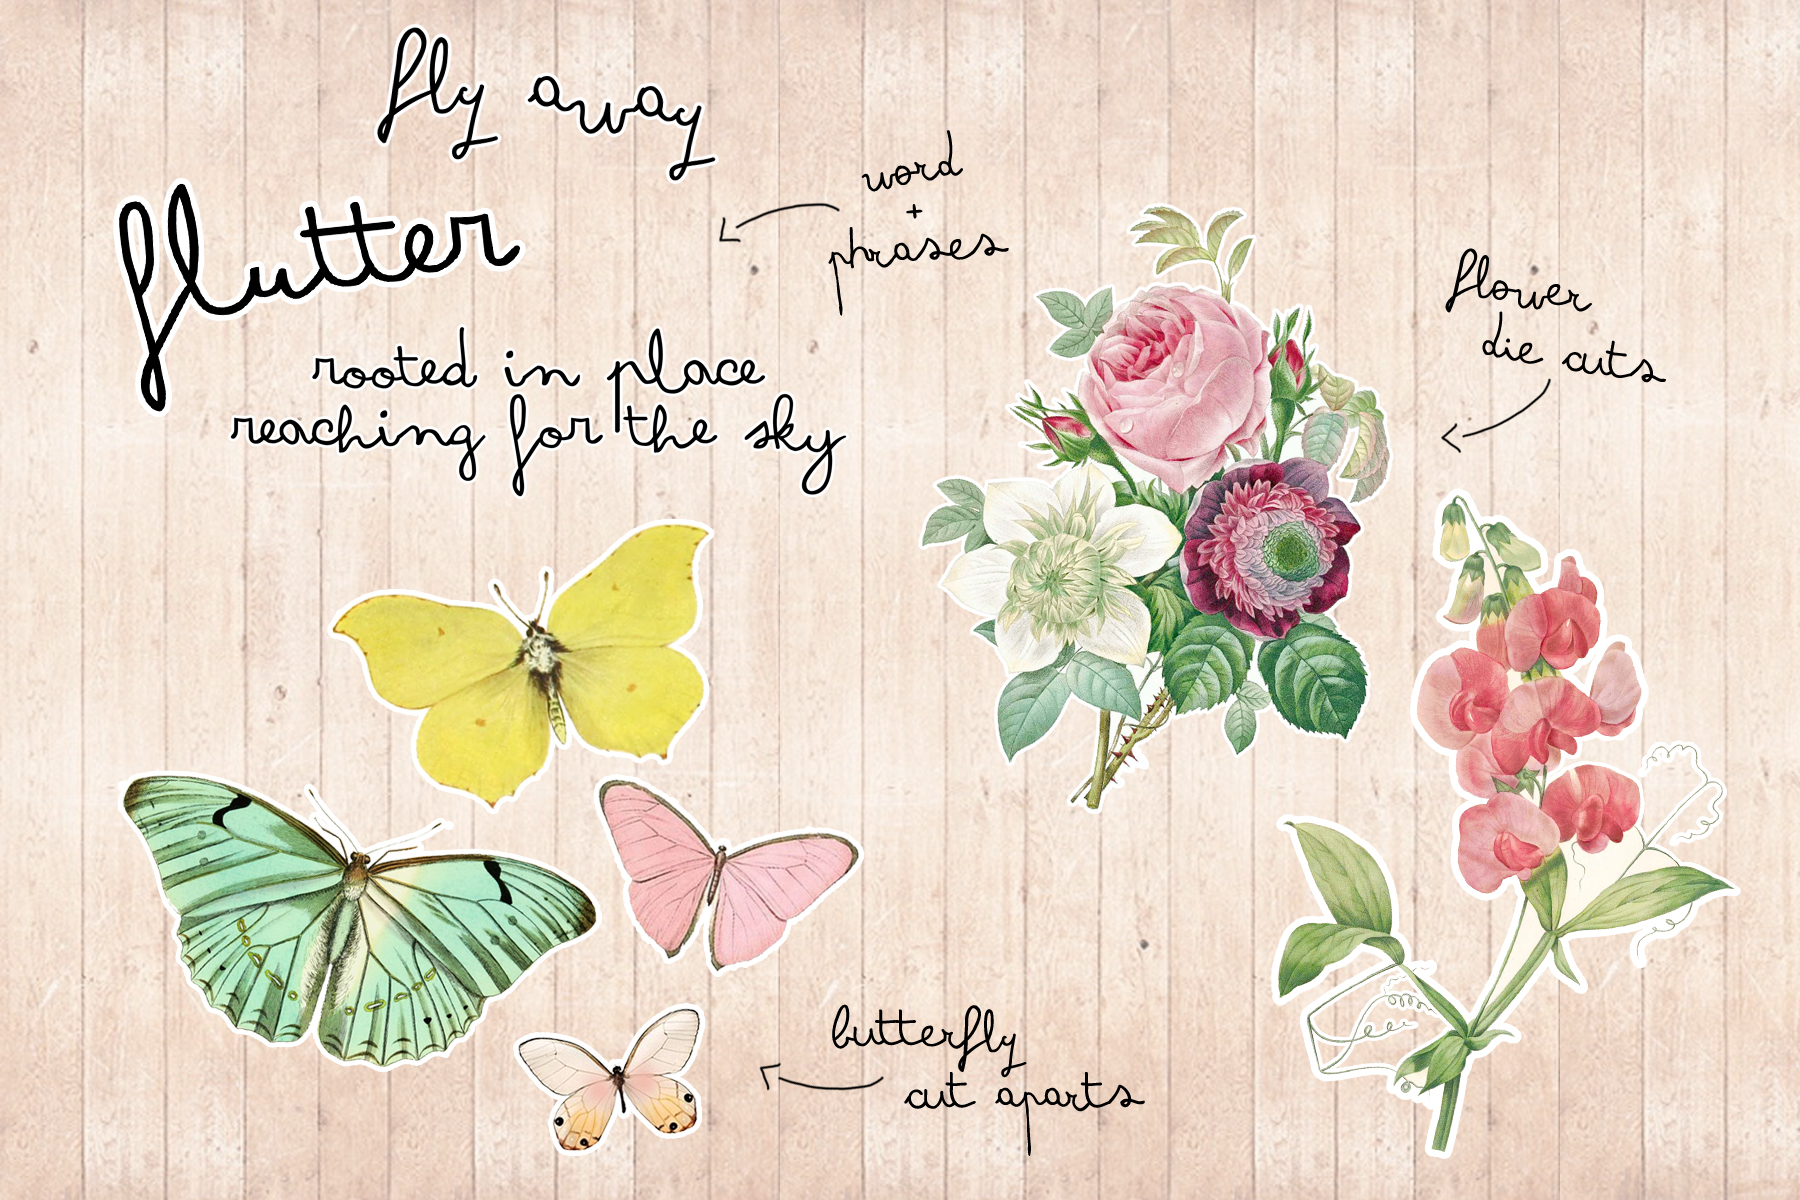 fly away
flutter
word
+
phrases
rooted in place
reaching for the sky
flower
die cuts
butterfly
cut aparts